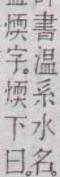 書溫系水名
煗字煗下曰